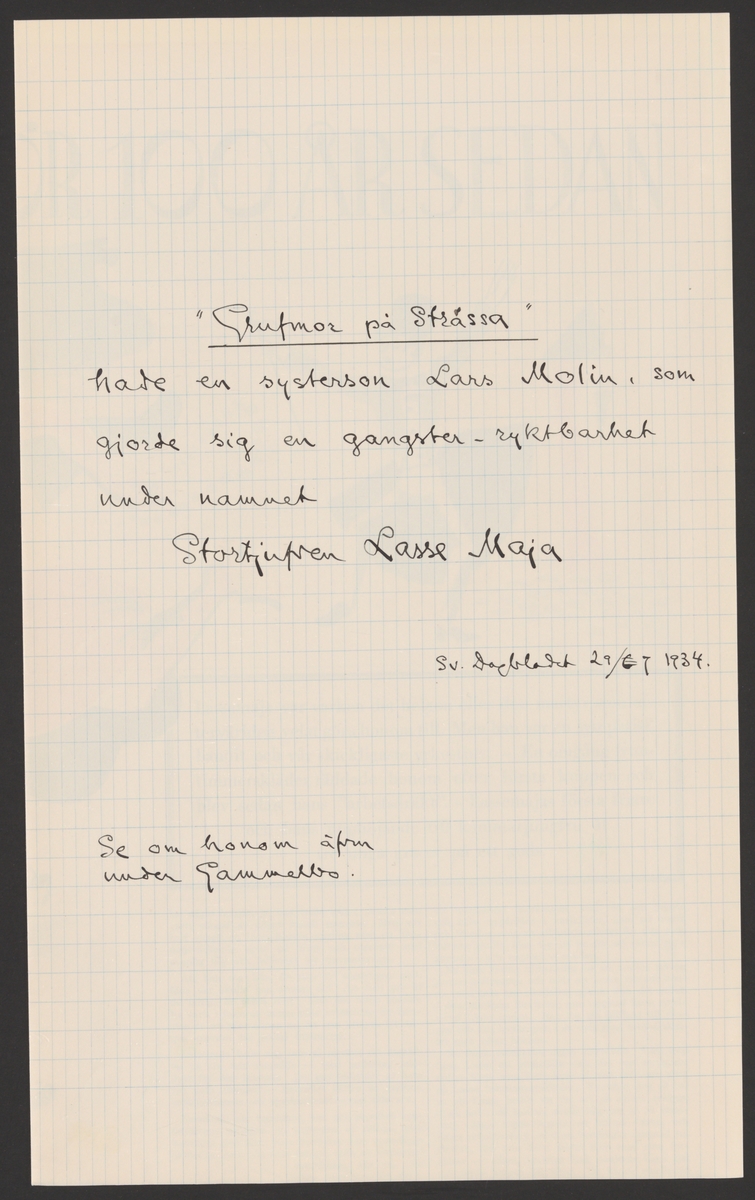 "Grufmor på Stråssa"
hade en systerson Lars Molin, som
gjorde sig en gangster-ryktbarhet
under namnet
Stortjufven Lasse Maja
Sv. Dagbladet 29/7 1934.
Se om honom äfven
under Gammelbo.